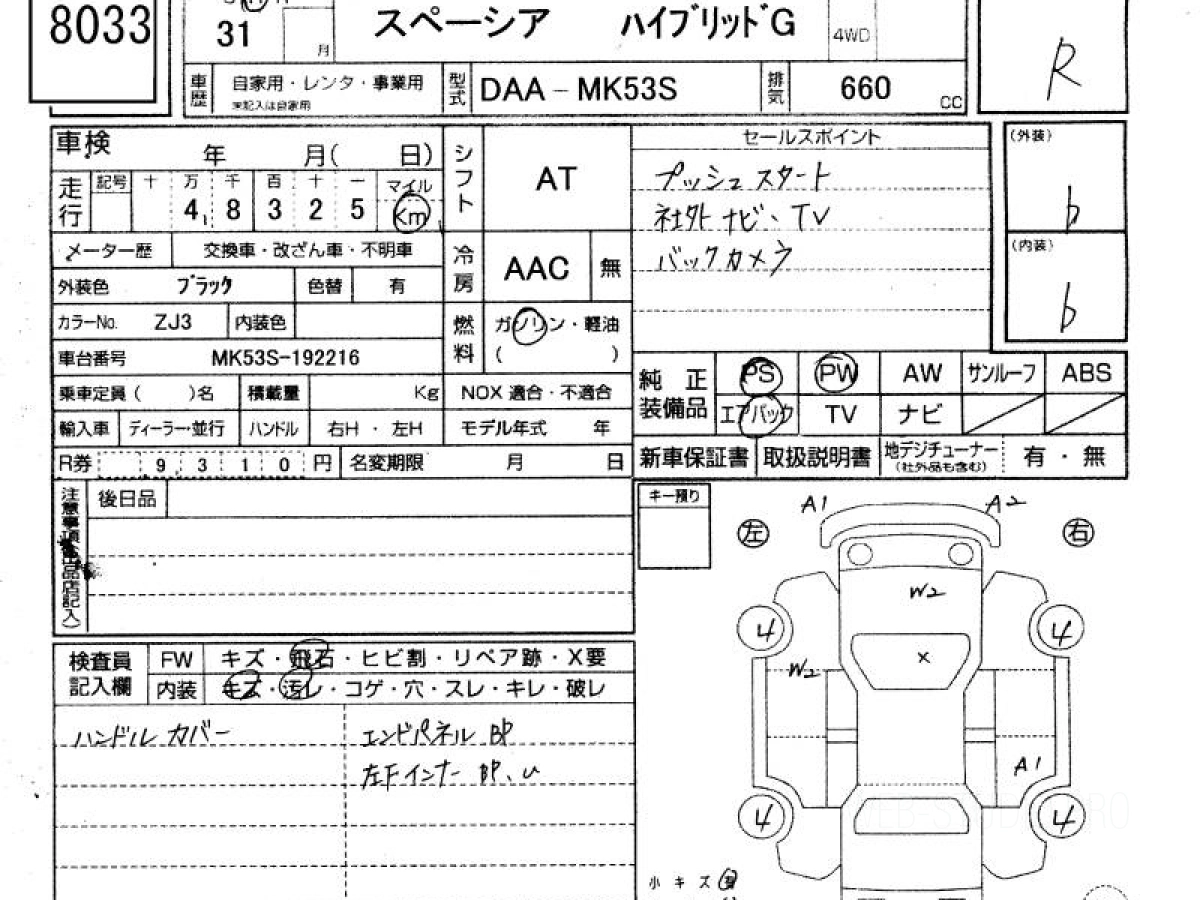 8033
31
月
スペーシア ハイブリッドG
4WD
R
車歴
自家用・レンタ・事業用
未記入は自家用
型式
DAA-MK53S
排気
660
CC
車検
年 月( 日)
シフト
AT
セールスポイント
プッシュスタート
社外ナビ、TV
バックカメラ
(外装)
b
(内装)
b
走行
記号 十 万 千 百 十 一 マイル
4 8 3 2 5 Km
メーター歴 交換車・改ざん車・不明車
冷房
AAC
無
外装色 ブラック 色替 有
カラーNo. ZJ3 内装色
燃料
ガソリン・軽油
( )
車台番号 MK53S-192216
乗車定員( )名 積載量 Kg NOX 適合・不適合
輸入車 ディーラー・並行 ハンドル 右H・左H モデル年式 年
R券 9 3 1 0 円 名変期限 月 日
純正装備品
PS PW AW サンルーフ ABS
エアバック TV ナビ
新車保証書 取扱説明書 地デジチューナー 有・無
(社外品も含む)
注意事項(出品店記入)
後日品
キー預り
A1 A2
左 右
W2
4 4
W2
×
A1
4 4
検査員記入欄
FW キズ・飛石・ヒビ割・リペア跡・X要
内装 キズ・汚レ・コゲ・穴・スレ・キレ・破レ
ハンドルカバー
エンドパネル BP
左Fインナー BP、U
小キズ